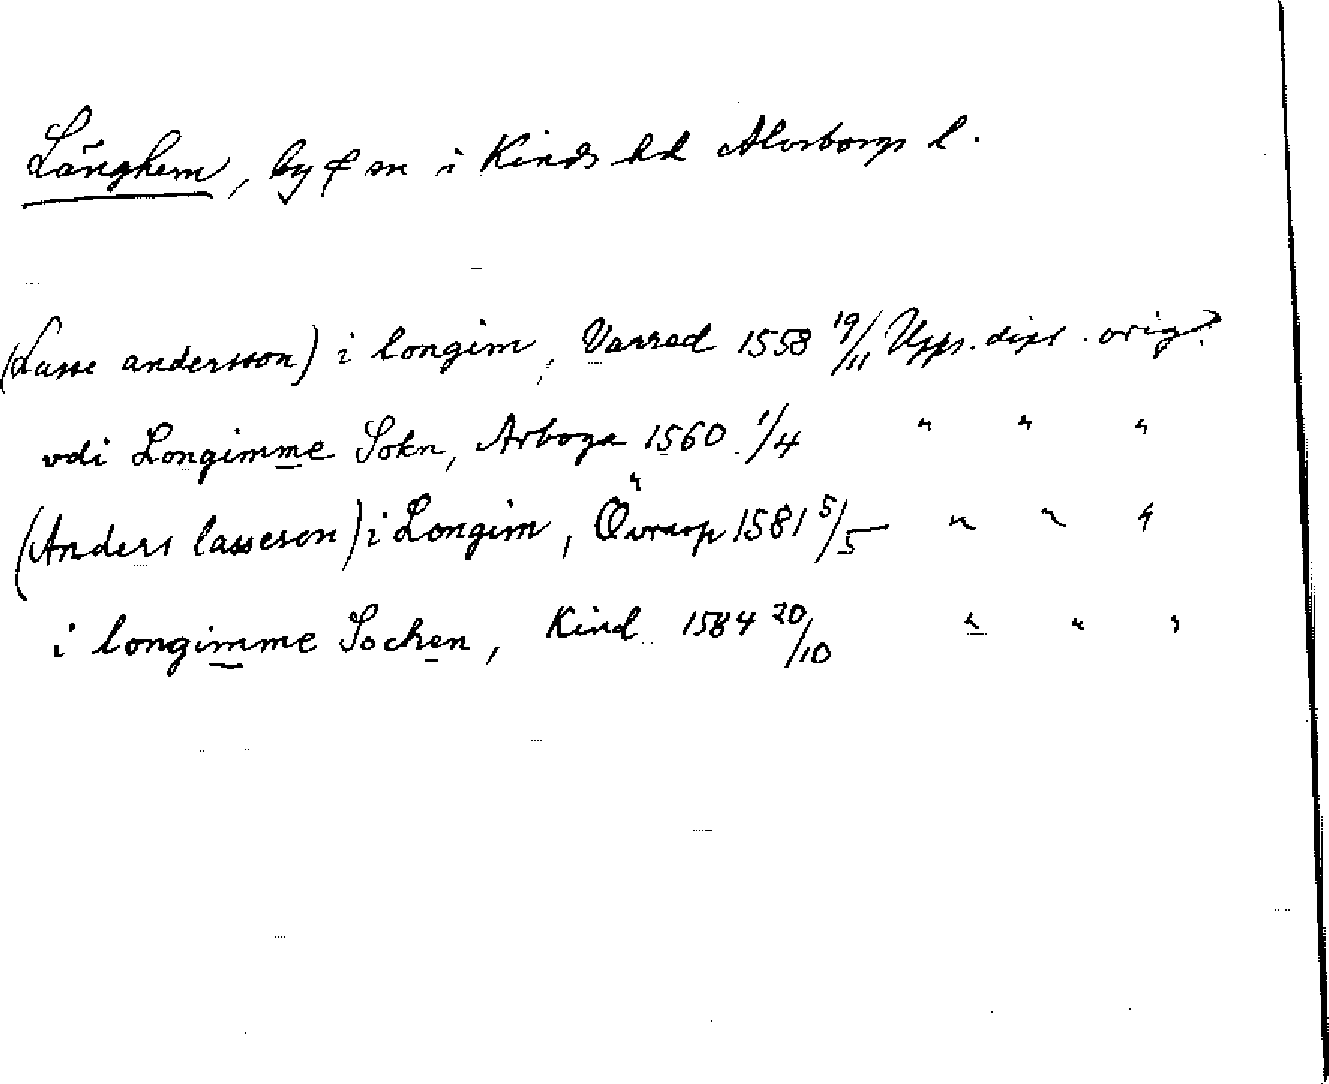 Länghem, by & sn i Kinds hd Älvsborgs l.
(Lasse andersson) i longim, Varred 1558 19/11 Upps. dipl. orig.
vdi Longimme Sokn, Arboga 1560 1/4 " " "
(Anders lasseson) i Longim, 1581 5/5 " " "
i longimme Sochen, Kind 1584 20/10 " " "